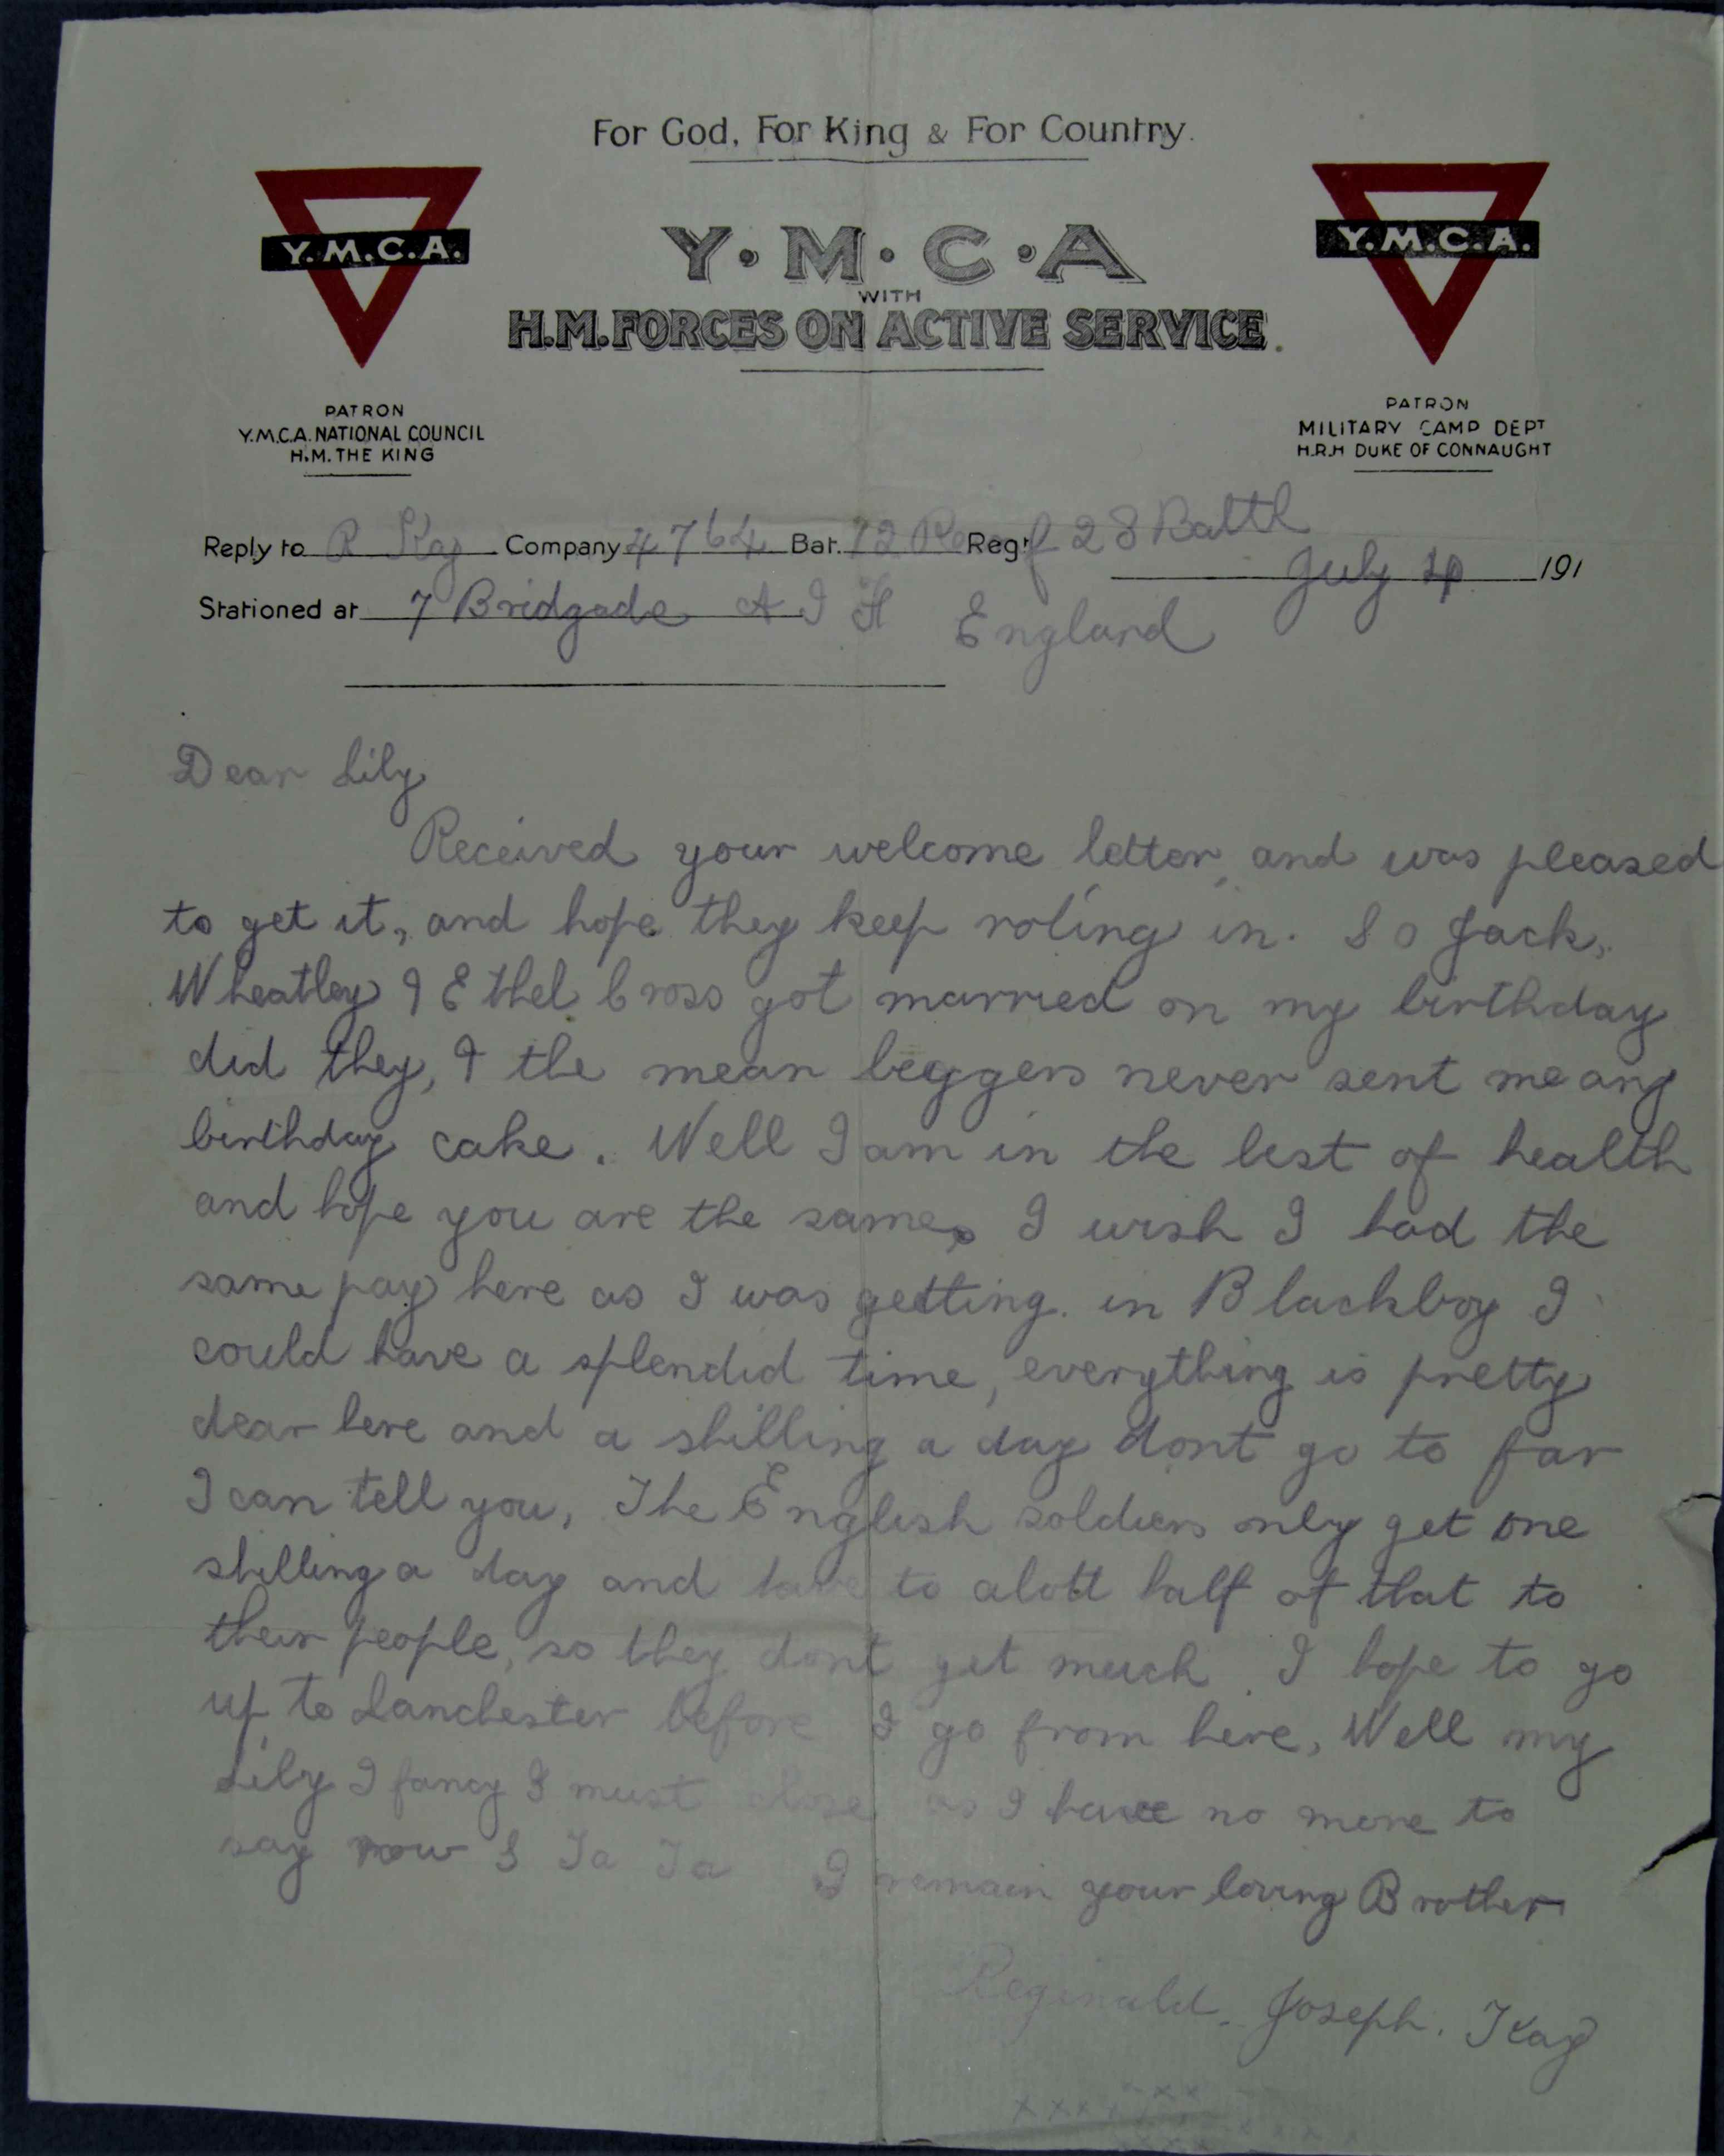 For God, For King & For Country.
Y.M.C.A.
Y.M.C.A
Y.M.C.A.
WITH
H.M. FORCES ON ACTIVE SERVICE.
PATRON
Y.M.C.A. NATIONAL COUNCIL
H.M. THE KING
PATRON
MILITARY CAMP DEPT
H.R.H DUKE OF CONNAUGHT
Reply to R Kay Company 4764 Bat. 12 Reg.t 28 Battl
July 191
Stationed at 7 Bridgade A I F England
Dear Lily
Received your welcome letter, and was pleased
to get it, and hope they keep roling in. So Jack,
Wheatley & Ethel Cross got married on my birthday
did they, & the mean beggers never sent me any
birthday cake. Well I am in the best of health
and hope you are the same, I wish I had the
same pay here as I was getting in Blackboy I
could have a splendid time, everything is pretty
dear here and a shilling a day dont go to far
I can tell you, The English soldiers only get one
shilling a day and have to alott half of that to
their people, so they dont get much. I hope to go
up to Lanchester before I go from here, Well my
Lily I fancy I must close as I have no more to
say now Ta Ta I remain your loving Brother
Reginald. Joseph. Kay